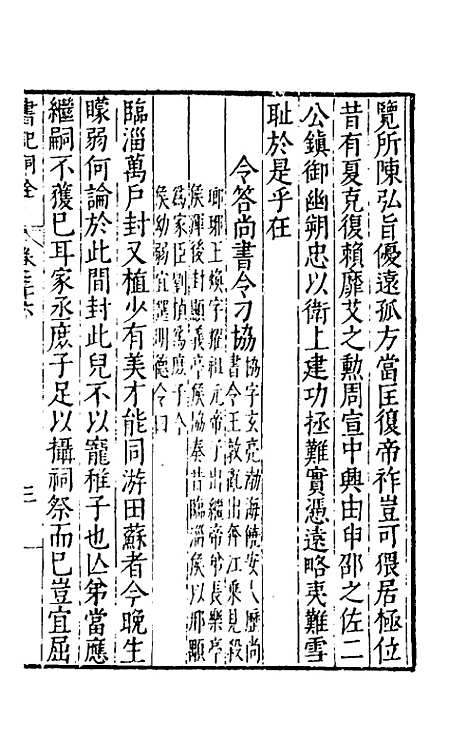 覽所陳弘旨優遠孤方當匡復帝祚豈可猥居極位
昔有夏克復賴靡艾之勲周宣中興由申邵之佐二
公鎮御幽朔忠以衛上建功拯難實憑遠略夷難雪
耻於是乎在
令答尚書令刁協
協字玄亮渤海饒安人歷尚
書令王敦亂出奔江乘見殺
瑯邪王煥字耀祖元帝子出繼帝弟長樂亭
侯渾後封顯義亭侯協奏昔臨淄侯以邢顒
爲家臣劉楨爲庶子今
侯幼弱宜選明德令曰
臨淄萬戶封又植少有美才能同游田蘇者今晚生
矇弱何論於此間封此兒不以寵稚子也亾弟當應
繼嗣不獲已耳家丞庶子足以攝祠祭而已豈宜屈
書記洞詮
卷三十六
三